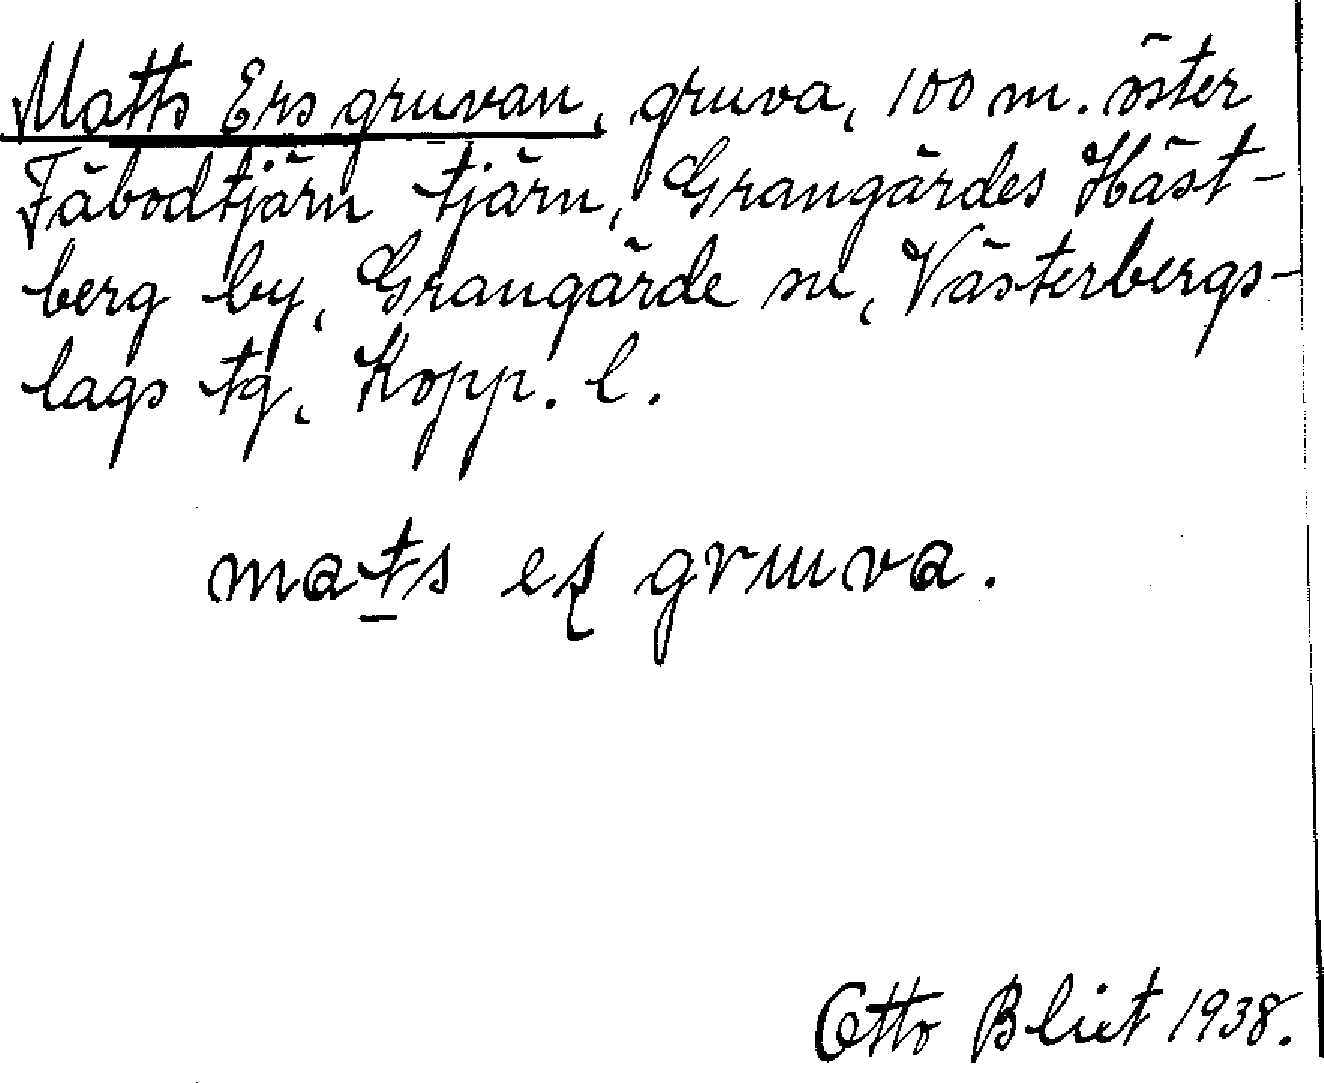 Matts Ers gruvan, gruva, 100 m. öster
Fäbodtjärn tjärn, Grangärdes Häst-
berg by, Grangärde sn, Västerbergs-
lags tg, Kopp. l.
mats eʂ gruva.
Otto Blixt 1938.